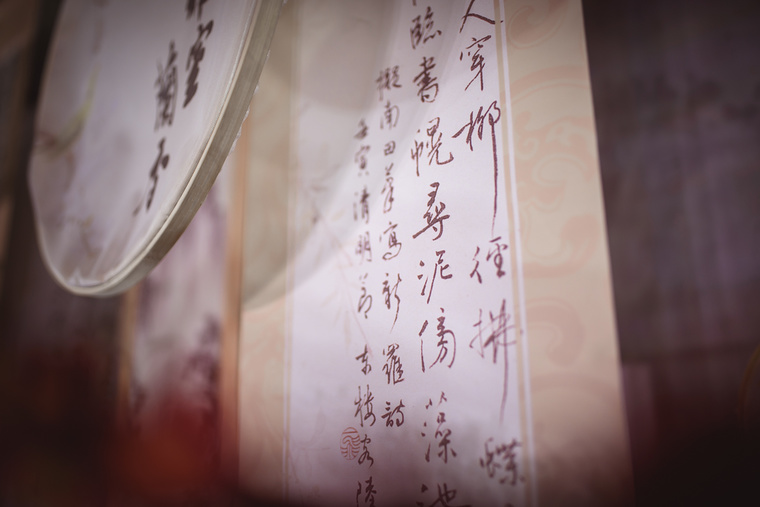 人穿柳徑拂蝶
臨書幌尋泥傍藻池
擬南田筆寫新羅詩
壬寅清明節東樓客陸
蘭